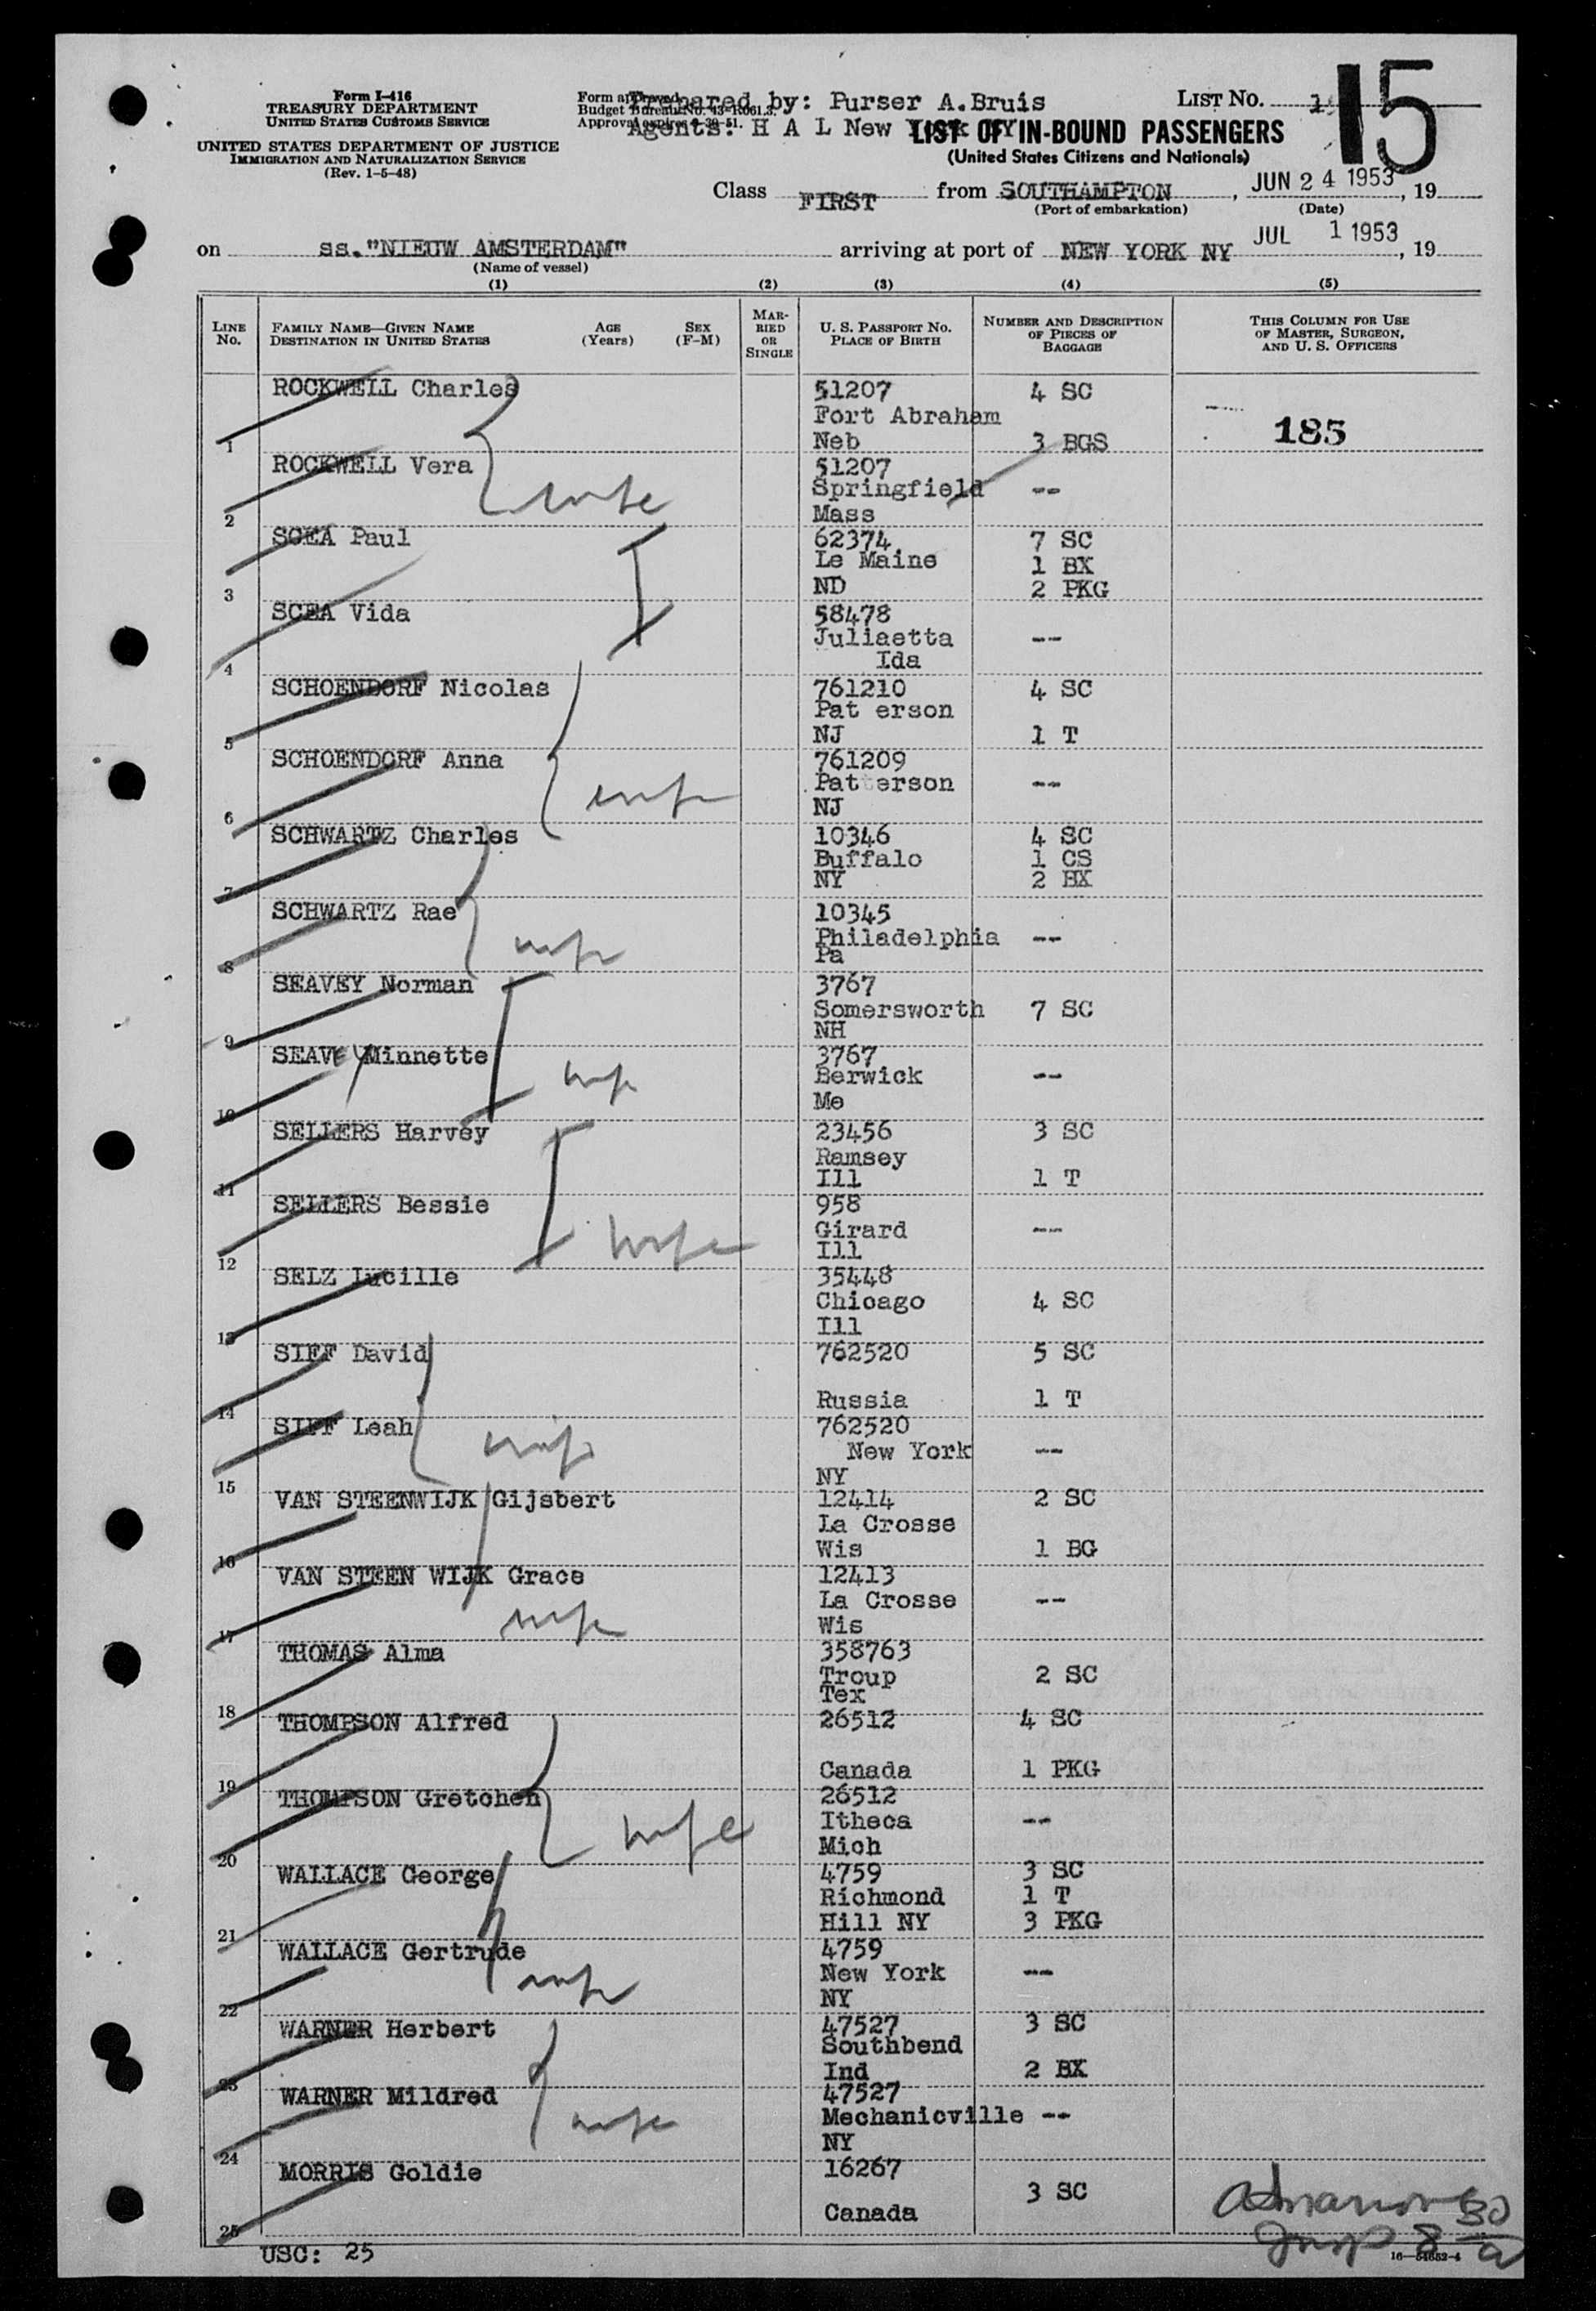 Form I-416
TREASURY DEPARTMENT
UNITED STATES CUSTOMS SERVICE
UNITED STATES DEPARTMENT OF JUSTICE
IMMIGRATION AND NATURALIZATION SERVICE
(Rev. 1-5-48)
Form approved.
Budget Bureau No. 43-R061.3.
Approval expires
Prepared by: Purser A.Bruis
Agents: H A L New York NY
LIST NO. 15
LIST OF IN-BOUND PASSENGERS
(United States Citizens and Nationals)
Class FIRST from SOUTHAMPTON, JUN 24 1953, 19
(Port of embarkation) (Date)
on ss."NIEUW AMSTERDAM" arriving at port of NEW YORK NY JUL 1 1953, 19
(Name of vessel)
(1) (2) (3) (4) (5)
LINE NO. FAMILY NAME—GIVEN NAME DESTINATION IN UNITED STATES AGE (Years) SEX (F-M) MARRIED OR SINGLE U. S. PASSPORT NO. PLACE OF BIRTH NUMBER AND DESCRIPTION OF PIECES OF BAGGAGE THIS COLUMN FOR USE OF MASTER, SURGEON, AND U. S. OFFICERS
ROCKWELL Charles 51207 4 SC
Fort Abraham
1 Neb 3 BGS 185
ROCKWELL Vera 51207
wife Springfield --
2 Mass
SCEA Paul 62374 7 SC
Le Maine 1 BX
3 ND 2 PKG
SCEA Vida 58478
Juliaetta --
4 Ida
SCHOENDORF Nicolas 761210 4 SC
Pat erson
5 NJ 1 T
SCHOENDORF Anna 761209
wife Patterson --
6 NJ
SCHWARTZ Charles 10346 4 SC
Buffalo 1 CS
7 NY 2 BX
SCHWARTZ Rae 10345
wife Philadelphia --
8 Pa
SEAVEY Norman 3767
Somersworth 7 SC
9 NH
SEAVEY Minnette 3767
wife Berwick --
10 Me
SELLERS Harvey 23456 3 SC
Ramsey
11 Ill 1 T
SELLERS Bessie 958
wife Girard --
12 Ill
SELZ Lucille 35448
Chicago 4 SC
13 Ill
SIEF David 762520 5 SC
14 Russia 1 T
SIFF Leah 762520
wife New York --
15 NY
VAN STEENWIJK Gijsbert 12414 2 SC
La Crosse
16 Wis 1 BG
VAN STEEN WIJK Grace 12413
La Crosse --
17 wife Wis
THOMAS Alma 358763
Troup 2 SC
18 Tex
THOMPSON Alfred 26512 4 SC
19 Canada 1 PKG
THOMPSON Gretchen 26512
wife Itheca --
20 Mich
WALLACE George 4759 3 SC
Richmond 1 T
21 Hill NY 3 PKG
WALLACE Gertrude 4759
wife New York --
22 NY
WARNER Herbert 47527 3 SC
Southbend
23 Ind 2 BX
WARNER Mildred 47527
wife Mechanicville --
24 NY
MORRIS Goldie 16267
3 SC
25 Canada
USC: 25
Insp
16—54652-4